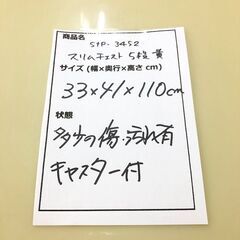 商品名
STP-3452
スリムチェスト 5段 黄
サイズ (幅×奥行×高さ cm)
33×41×110cm
状態
多少の傷・汚れ有
キャスター付